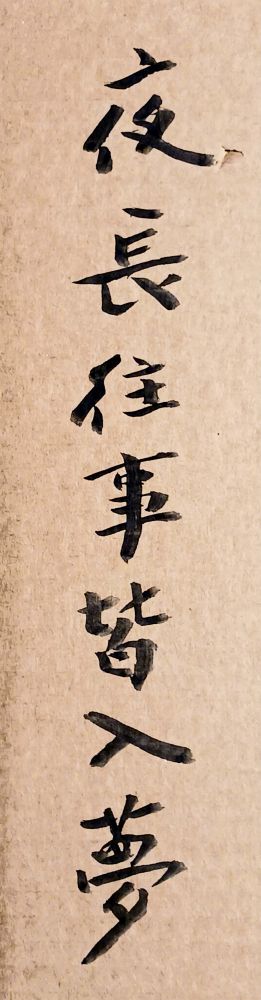 夜長往事皆入夢